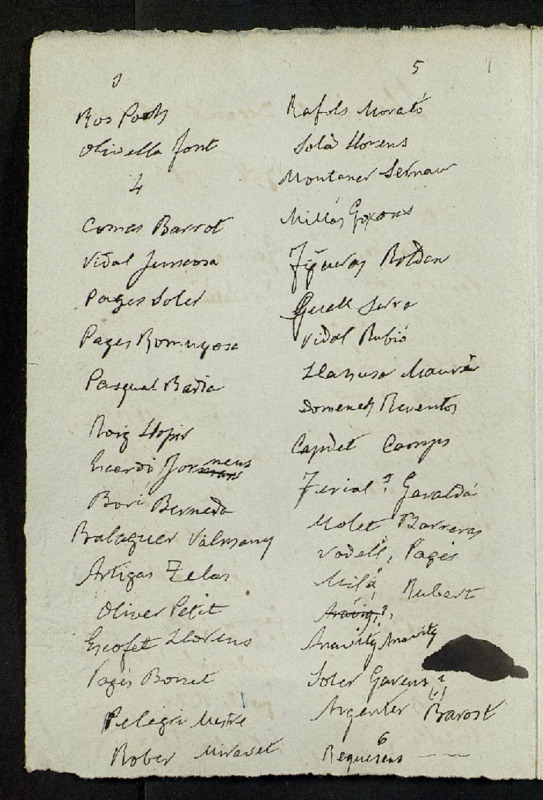 3
Ros Poch
Olivella Font
4
Comas Barrot
Vidal Juncosa
Pages Soler
Pages Romagosa
Pasqual Badia
Roig Llopis
Escardó
Boré Berneda
Balaguer Valmany
Artigas Zelas
Oliver Petit
Escofet Llorens
Pagès Bonet
Pelegri Mestre
Rober Miravet
5 1
Rafols Morató
Solà Llorens
Montaner Sernau
Millás
Figueras Roldan
Guell Serra
Vidal Rubió
Llansuso Maurá
Domenech Reventos
Capdet Camps
Ferial ? Garaldá
Molet Barreras
Vodell, Pagés
Milá Rubert
Soler
Argenter Barost
6
Requesens